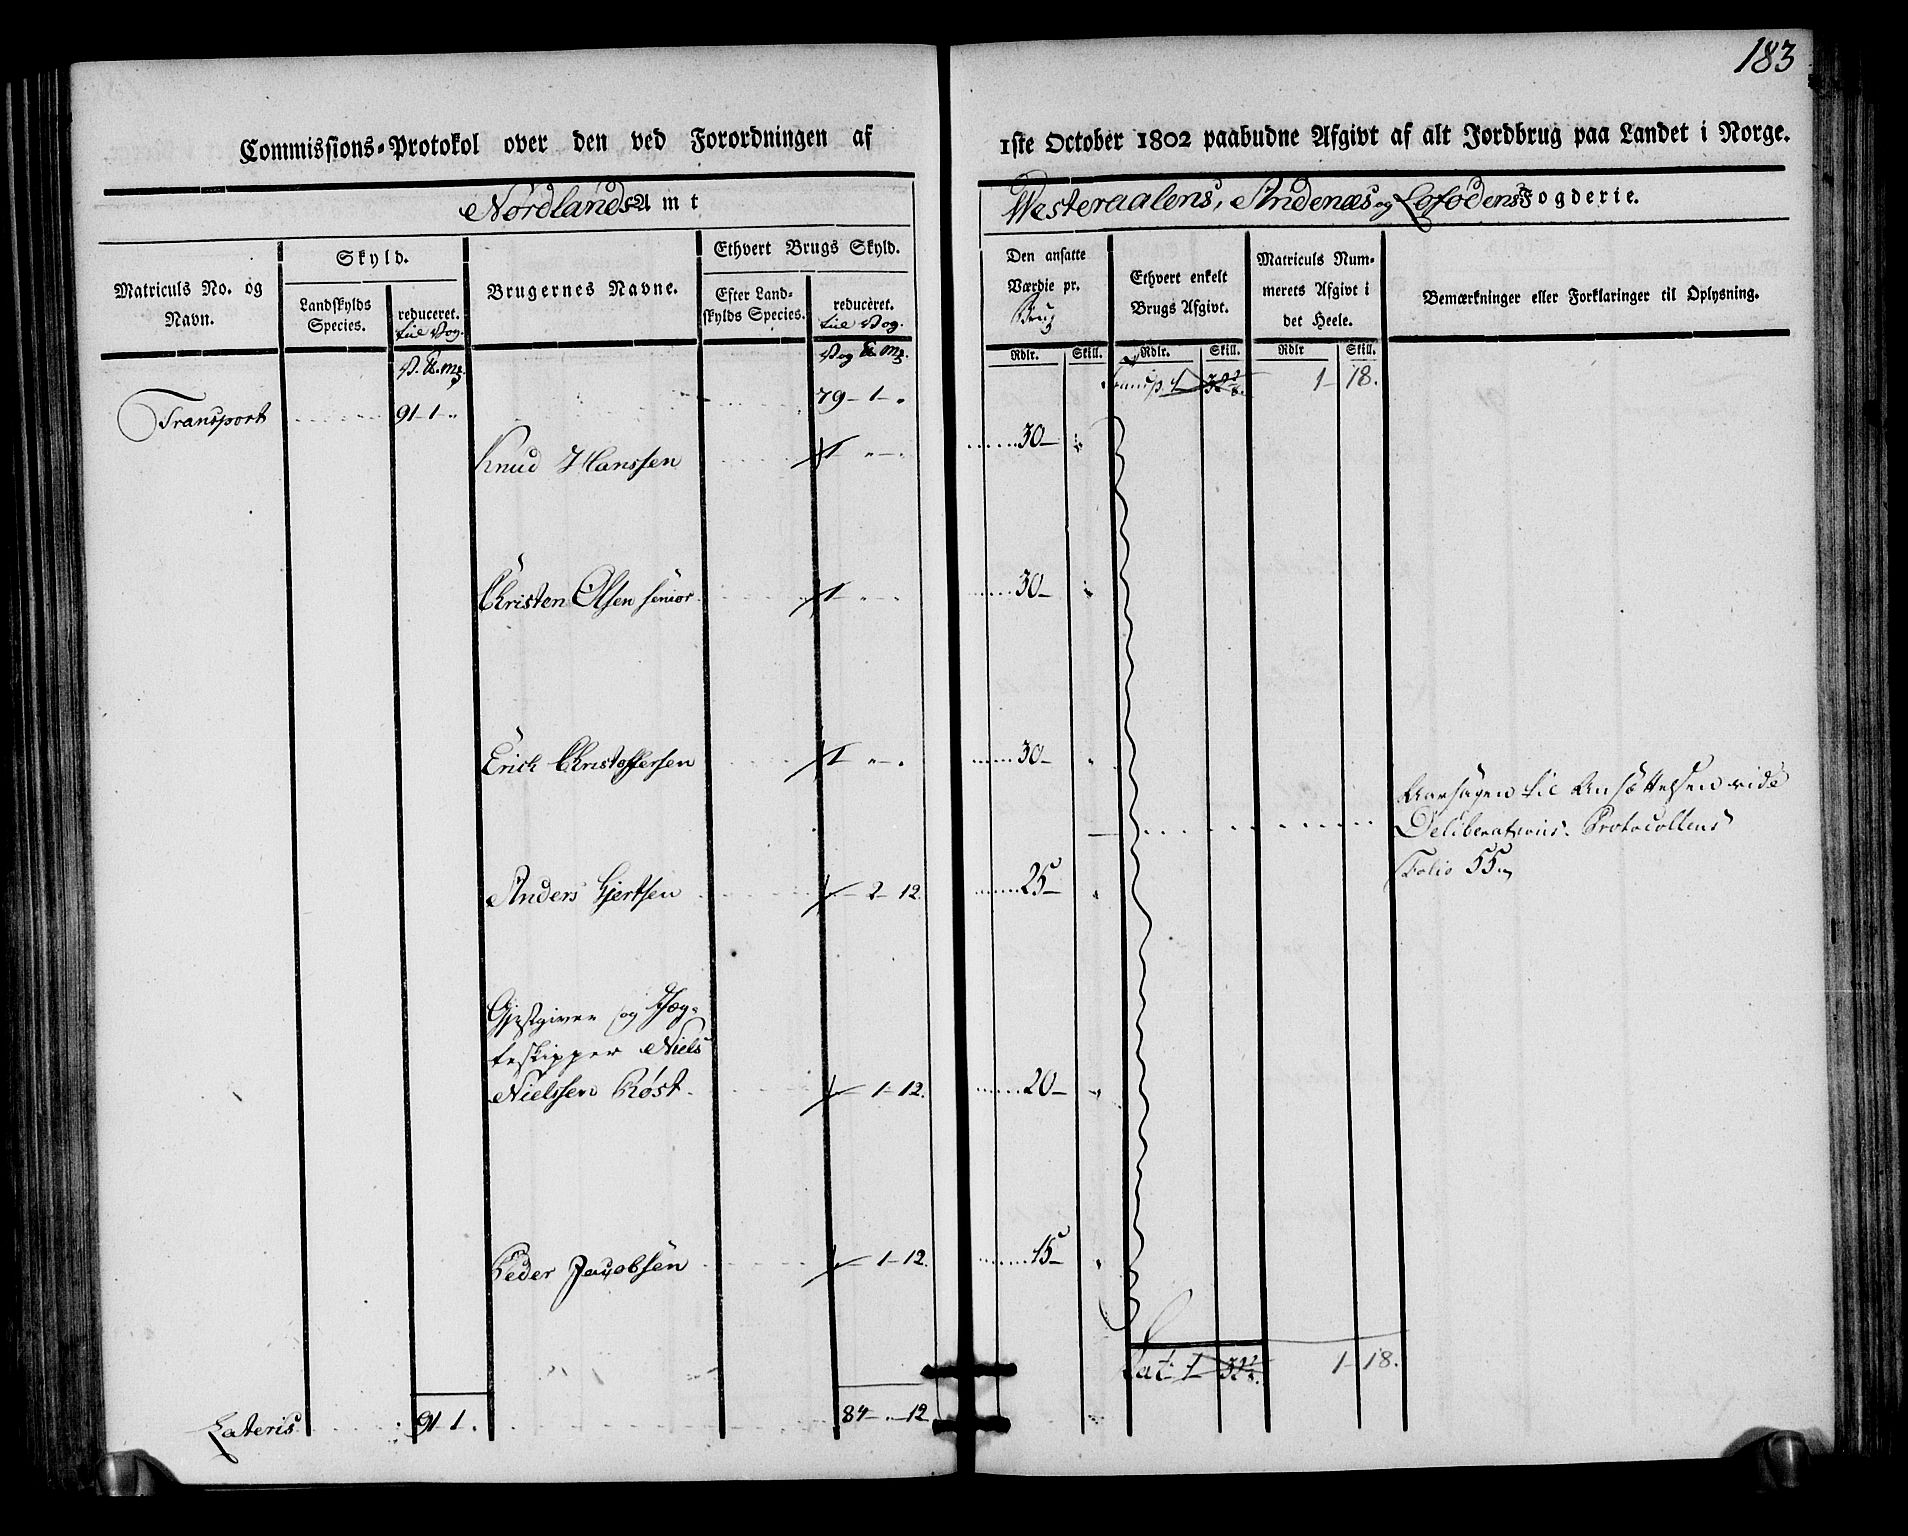 183
Commissions-Protokol over den ved Forordningen af 1ste October 1802 paabudne Afgivt af alt Jordbrug paa Landet i Norge.
Nordlands Amt
Westeraalens, Andenæs og Lofodens Fogderie.
Matriculs No. og Navn.
Skyld.
Landskylds Species.
reduceret. til Vog.
V. ℔. mζ.
Brugernes Navne.
Ethvert Brugs Skyld.
Efter Landskylds Species.
reduceret. til Vog.
Vog ℔. mζ.
Den ansatte Værdie pr. Brug
Rdlr. Skill.
Ethvert enkelt Brugs Afgivt.
Rdlr. Skill.
Matriculs Nummerets Afgivt i det Heele.
Rdlr Skill.
Bemærkninger eller Forklaringer til Oplysning.
Transport 91-1-„ 79-1-„ Transp. 1 1-18.
Knud Hanssen 1 „-„ 30-„
Christen Olsen senior 1 - - - 30-„
Erich Christoffersen 1 „-„ 30-„
Aarsagen til Ansættelsen vide
Deliberations-Protocollens
Folio 55.
Anders Gjertsen -2-12. 25-„
Gjestgiver og Jæg-
teskipper Niels
Nielssen Röst. -1-12. 20-„
Peder Jacobsen -1-12. 15-„
Lat: 1 1-18.
Lateris 91-1. 84-„-12